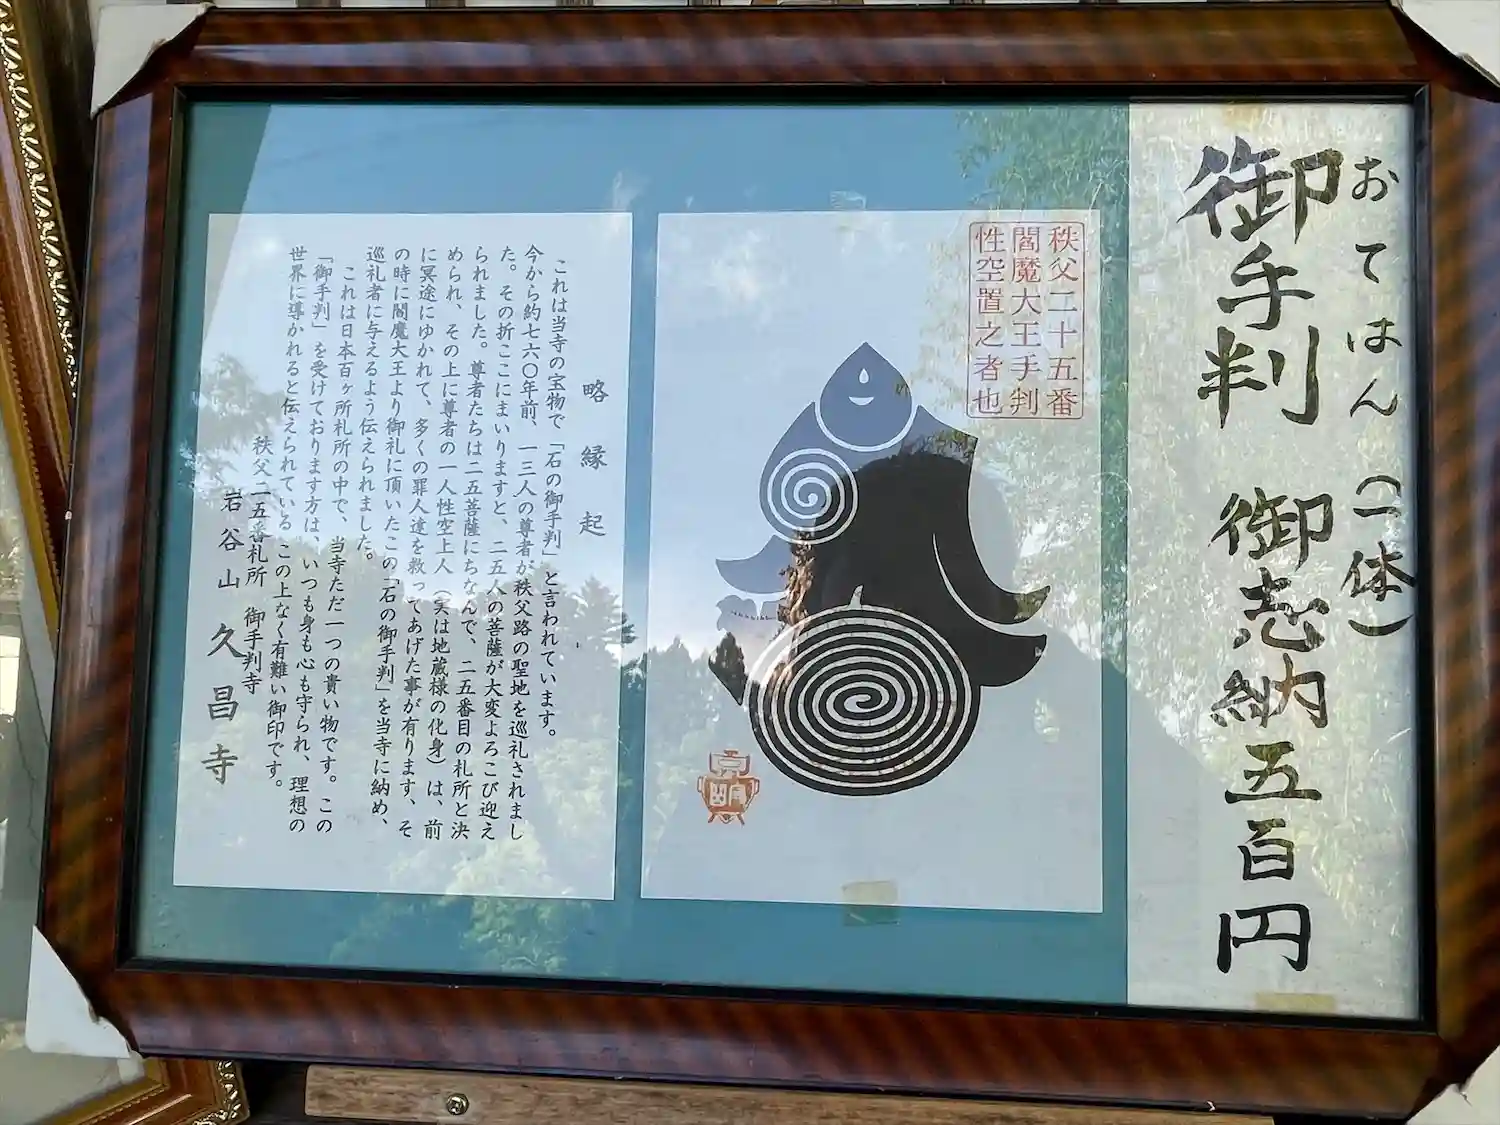 おてはん(一体)
御手判 御志納五百円
秩父二十五番
閻魔大王手判
性空置之者也
略縁起
これは当寺の宝物で「石の御手判」と言われています。
今から約七六〇年前、一三人の尊者が秩父路の聖地を巡礼されまし
た。その折ここにまいりますと、二五人の菩薩が大変よろこび迎え
られました。尊者たちは二五菩薩にちなんで、二五番目の札所と決
められ、その上に尊者の一人性空上人(実は地蔵様の化身)は、前
に冥途にゆかれて、多くの罪人達を救ってあげた事が有ります、そ
の時に閻魔大王より御礼に頂いたこの「石の御手判」を当寺に納め、
巡礼者に与えるよう伝えられました。
これは日本百ヶ所札所の中で、当寺ただ一つの貴い物です。この
「御手判」を受けております方は、いつも身も心も守られ、理想の
世界に導かれると伝えられているこの上なく有難い御印です。
秩父二五番札所 御手判寺
岩谷山 久昌寺